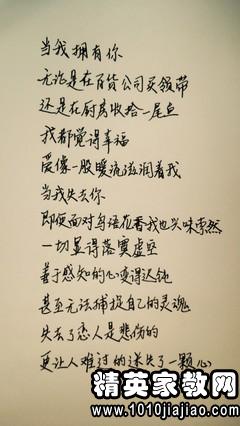 当我拥有你
无论是在百货公司买领带
还是在厨房收拾一尾鱼
我都觉得幸福
爱像一股暖流滋润着我
当我失去你
即便面对鸟语花香我也兴味索然
一切显得落寞虚空
善于感知的心变得迟钝
甚至无法捕捉自己的灵魂
失去了恋人是悲伤的
更让人难过的迷失了一颗心
精英家教网
www.1010jiajiao.com